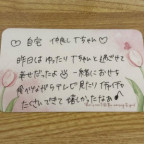 ♡ 自宅 仲良しTちゃん♡
昨日はゆったりTちゃんと過ごせて
幸せだったよ 一緒におせち
食べながらテレビ見たり イチャイチャ
たくさんできて嬉しかったなぁ